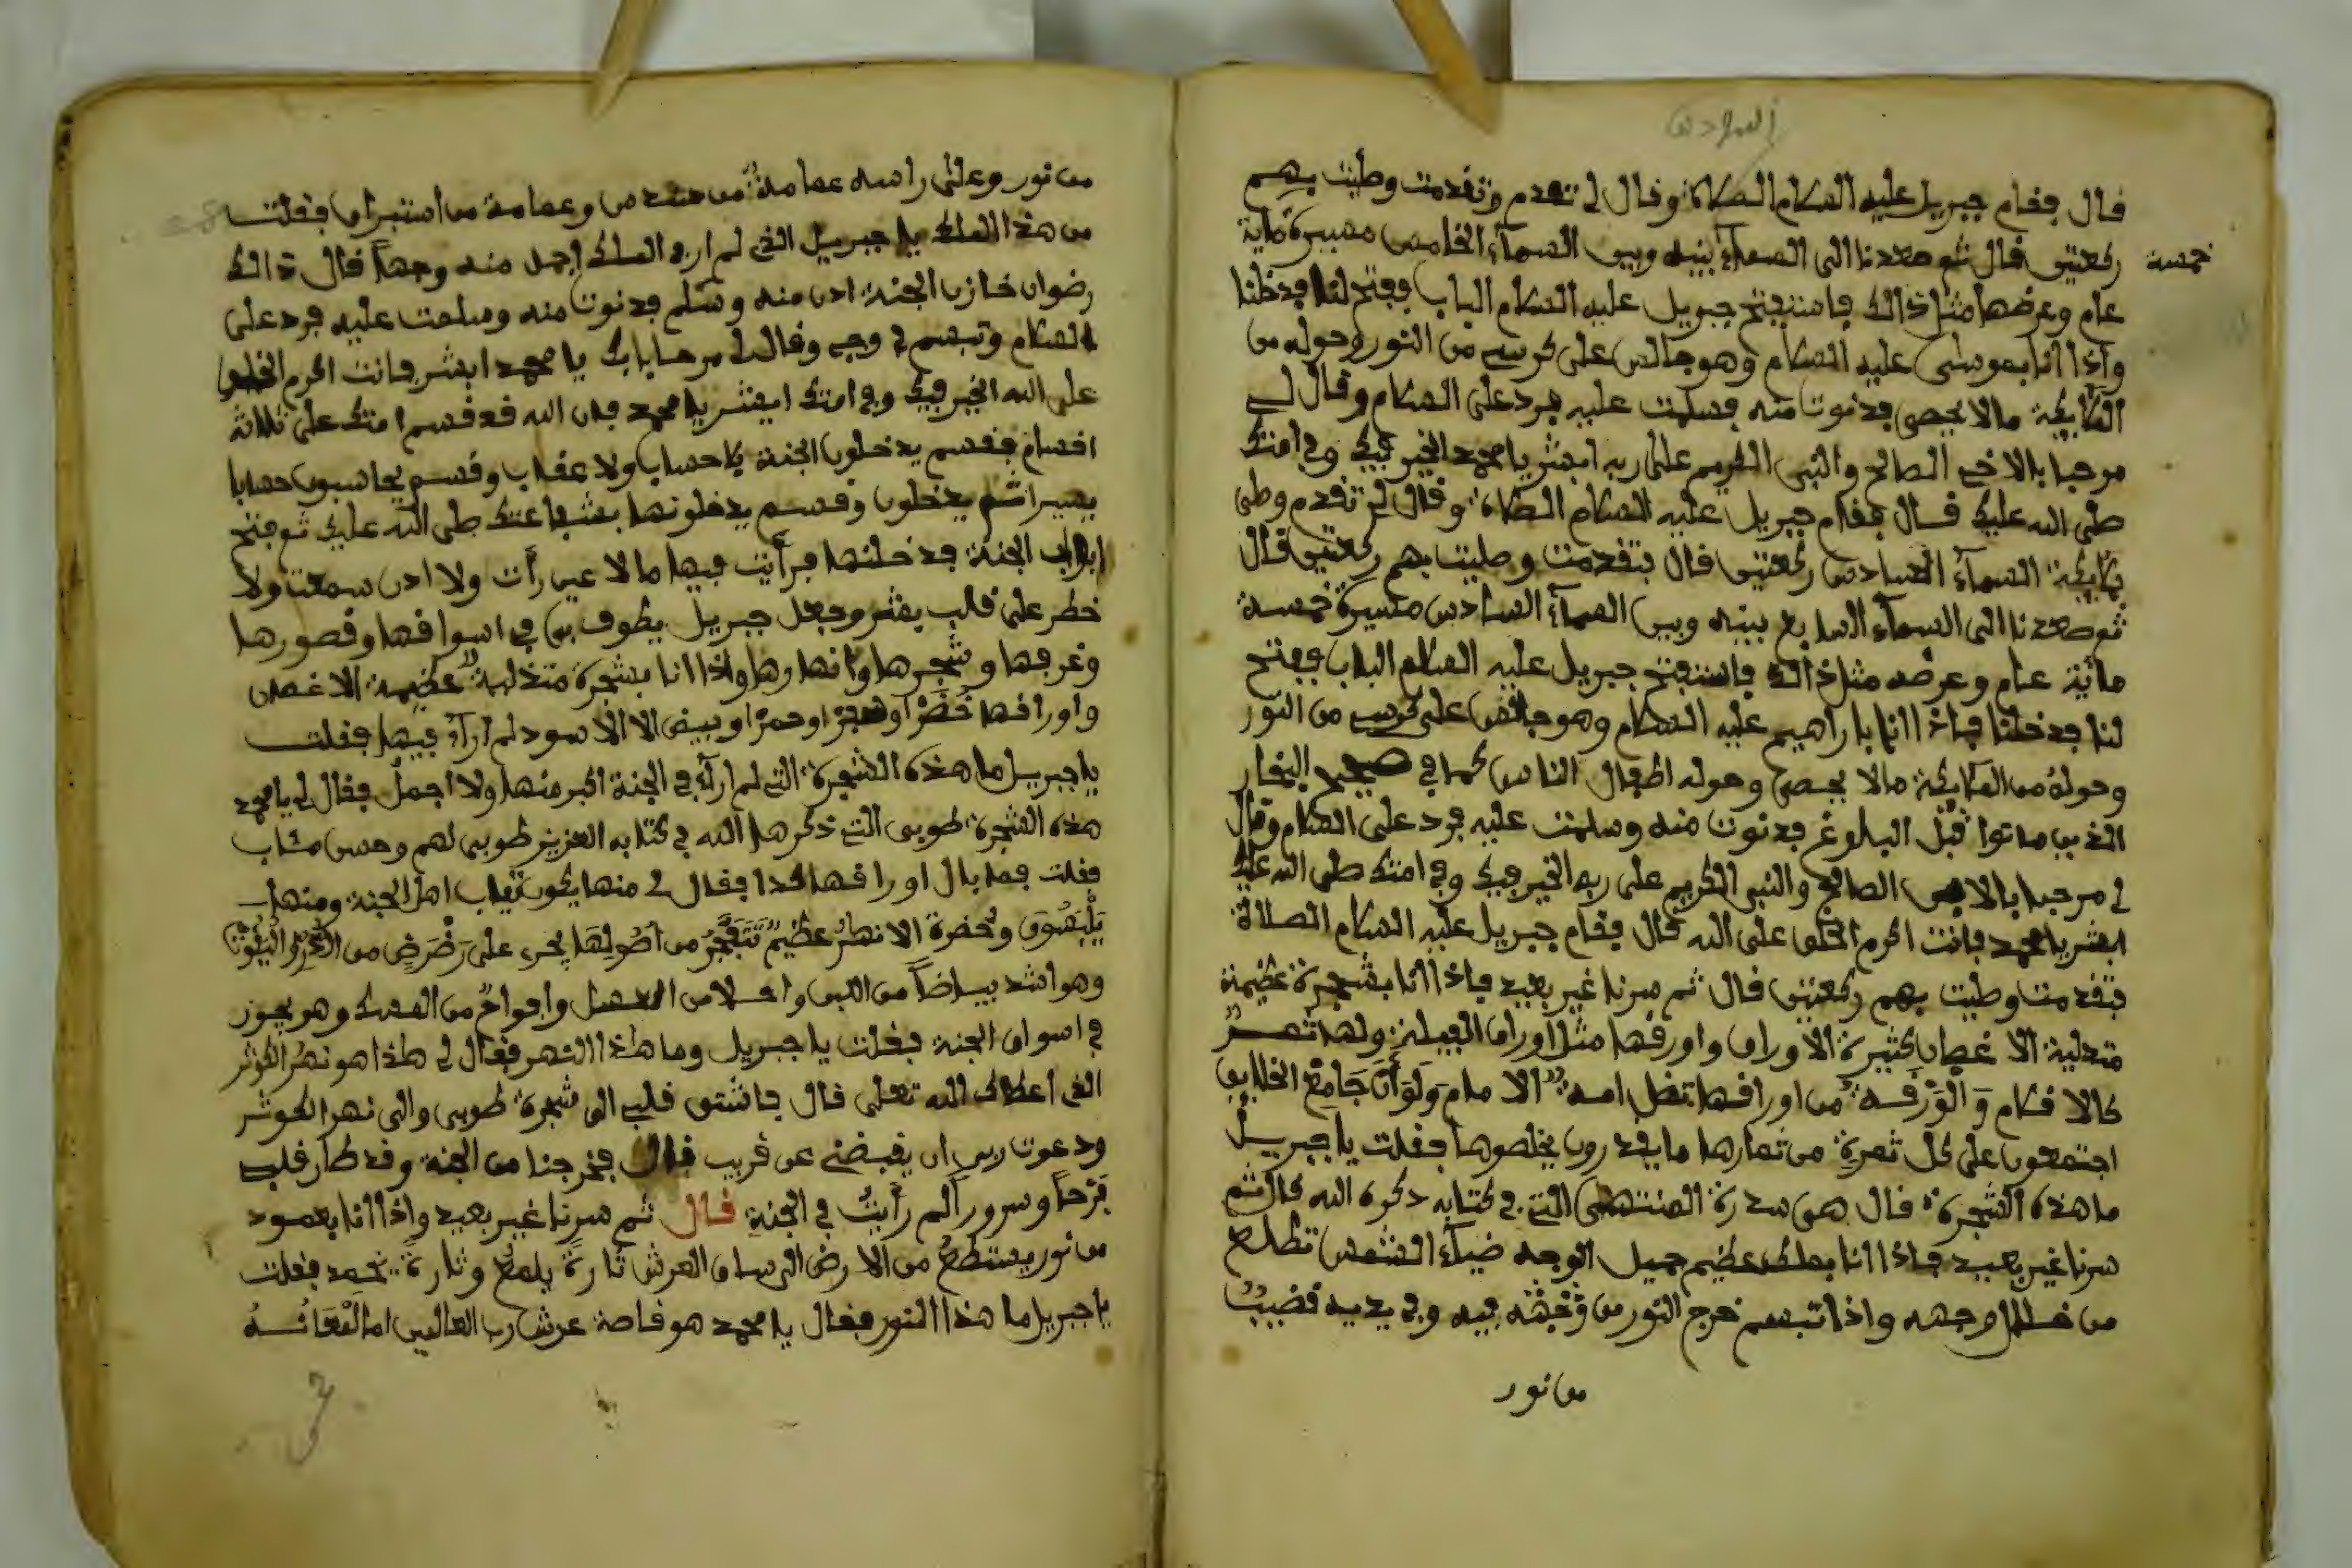 السادس
قال فقام جبريل عليه السلام الصلاة وقال لي تقدم فتقدمت وصليت بهم
ركعتين قال ثم صعدنا الى السماء بينه وبين السماء الخامس مسيرة ماية
خمسة
عام وعرضها مثل ذالك فاستفتح جبريل عليه السلام الباب ففتح لنا فدخلنا
واذا انا بموسى عليه السلام وهو جالس على كرسي من النور وحوله من
الملايكة مالا يحصى فدنوت منه فسلمت عليه فرد على السلام وقال لي
مرحبا بالاخ الصالح والنبي الكريم على ربه ابشر يا محمد الخير فيك وفي امتك
صلى الله عليك قال فقام جبريل عليه السلام الصلاة وقال لي تقدم وصلي
بملايكة السماء السادس ركعتين قال فتقدمت وصليت بهم ركعتين قال
ثم صعدنا الى السماء السابع بينه وبين السماء السادس مسيرة خمسة
مائة عام وعرضه مثل ذالك فاستفتح جبريل عليه السلام الباب ففتح
لنا فدخلنا فاذا انا باراهيم عليه السلام وهو جالس على كرسي من النور
وحوله من الملايكة مالا يحصى وحوله اطفال الناس كما في صحيح البخار
الذين ماتوا قبل البلوغ فدنوت منه وسلمت عليه فرد على السلام وقال
لي مرحبا بالابن الصالح والنبي الكريم على ربه الخير فيك وفي امتك صلى الله عليك
ابشر يا محمد فانت اكرم الخلق على الله قال فقام جبريل عليه السلام الصلاة
فتقدمت وصليت بهم ركعتين قال ثم سرنا غير بعيد فاذا انا بشجرة عظيمة
متدلية الاغصان كثيرة الاوراق واورقها مثل اوراق الفيلة ولها ثمر
كالاقلام وَالْوَرْقَة من اوراقها تظل امة الامام وَلَوَ أَنَّ جَامِعَ الخلايق
اجتمعون على كل ثمرة من ثمارها ما يقدرون يخلصوها فقلت يا جبريل
ما هذه الشجرة قال هي سدرة المنتهى التي في كتابه ذكره الله قال ثم
سرنا غير بعيد فاذا انا بملك عظيم جميل الوجه ضياء الشمس تطلع
من وجهه واذا تبسم خرج النور من فيه وفي يديه قضيب
من نور
من نور وعلى راسه عمامة من سندس وعمامة من استبراق فقلت
من هذا الملك يا جبريل الذي لم ار في الملك اجمل منه وجها قال ذالك
رضوان خازن الجنة ادن منه وسلم فدنوت منه وسلمت عليه فرد على
السلام وتبسم في وجهي وقال لي مرحبا بك يا محمد ابشر فانت اكرم الخلق
على الله الخير فيك وفي امتك ابشر يا محمد فان الله قد قسم امتك على ثلاثة
اقسام فقسم يدخلون الجنة بلا حساب ولا عقاب وقسم يحاسبون حسابا
يسيرا ثم يدخلون وقسم يدخلونها بشفاعتك صلى الله عليك ثم فتح
ابواب الجنة فدخلتها فرأيت فيها مالا عين رأت ولا اذن سمعت ولا
خطر على قلب بشر وجعل جبريل يطوف بي في اسواقها وقصورها
وغرفها وشجرها وانهارها واذا انا بشجرة متدلية عظيمة الاغصن
واوراقها خُضْرًا وصفرًا وحمرًا وبيض الا الاسود لم ارآه فيها فقلت
يا جبريل ما هذه الشجرة التي لم ارآى في الجنة اكبر منها ولا اجمل فقال لي يا محمد
هذه الشجرة طوبى التي ذكرها الله في كتابه العزيز طوبى لهم وحسن مئاب
فقلت فما بال اوراقها كذا فقال لي منها يكون ثياب اهل الجنة ومنها
يَلْبَسُونَ الانهر عظيم تَتَفَجَّرُ من اصُولِهَا يجرى على رَضْرَضٍ من
وهو اشد بياضا من اللبن واحلا من العسل وافواح من المسك وهو يجوز
في اسواق الجنة فقلت يا جبريل وما هذا النهر فقال لي هذا هو نهر الكوثر
الذي أعطاك الله تعلى قال فاشتق قلبي الى شجرة طوبى والى نهر الكوثر
ودعوت ربي ان يقبضني عن قريب قال فخرجنا من الجنة وقد طار قلبي
فرحًا وسرورًا لم رأيتُ في الجنة قال ثم سرنا غير بعيد واذا انا بعمود
من نور يستطع من الارض الى ساق العرش تارة يلمع وتارة يخمد فقلت
يا جبريل ما هذا النور فقال يا محمد هو قاصة عرش رب العالمين